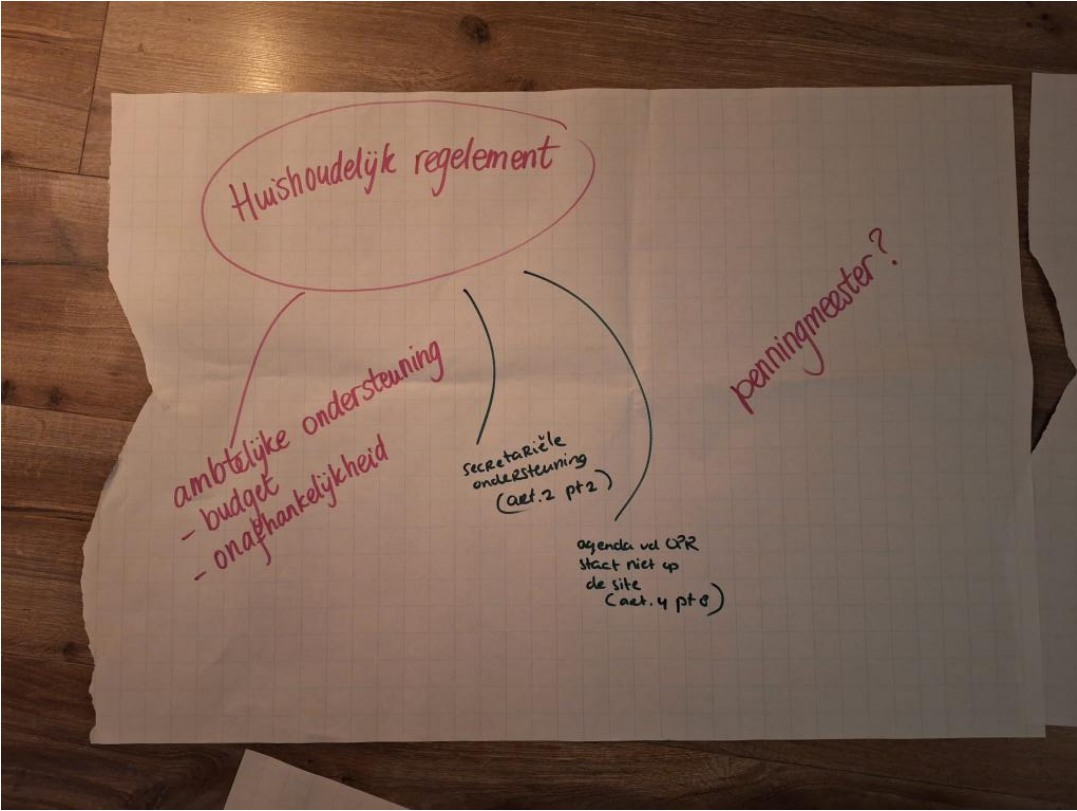 Huishoudelijk regelement
penningmeester?
ambtelijke ondersteuning
- budget
- onafhankelijkheid
secretariële
ondersteuning
(art. 2 pt 2)
agenda vd OPR
staat niet op
de site
(art. 4 pt 8)